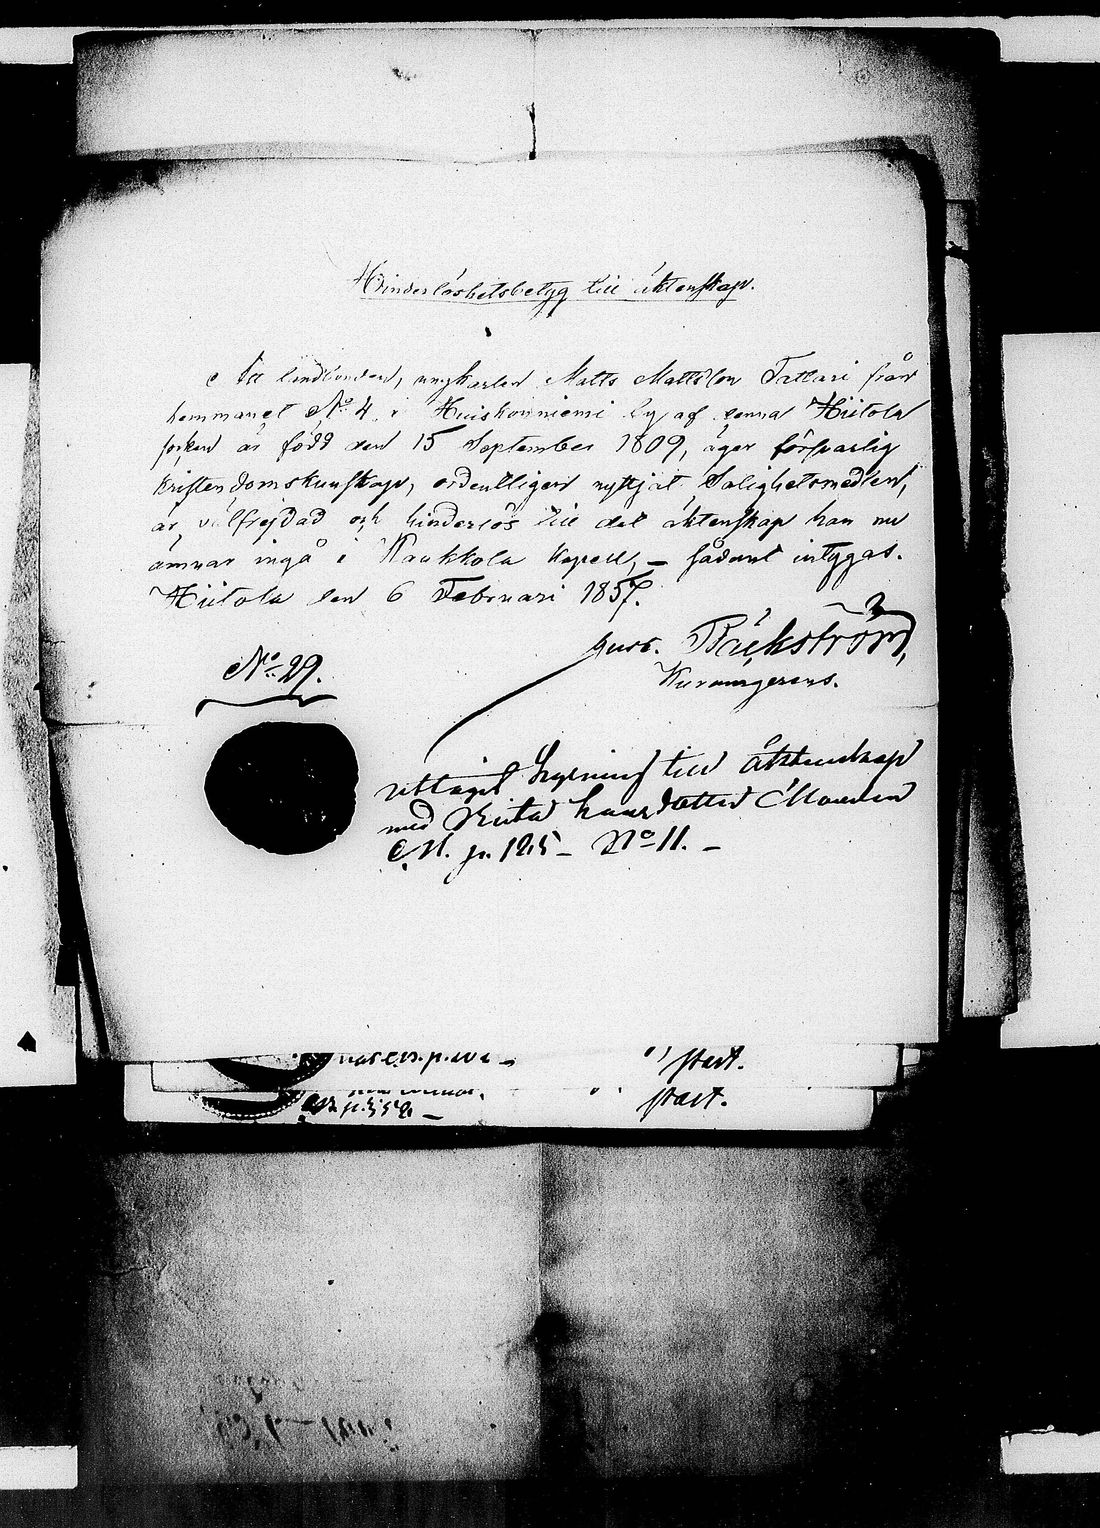 Hinderlöshetsbetyg till äktenskap.
Att landbonden, ungkarlen Matts Mattsson Tattari från
hemmanet No 4 i Huiskonniemi by af denna Hiitola
socken är född den 15 September 1809, äger försvarlig
kristendomskunskap, ordentligen nyttjat Salighetsmedlen,
är välfrejdad och hinderlös till det äktenskap han nu
ämnar ingå i Kaukkola kapell, – sådant intygas.
Hiitola den 6 Februari 1857.
Gust. Bäckström,
No 29.
uttagit lysning till äktenskap
med
C.M. p. 125 – No 11. –
start.
start.